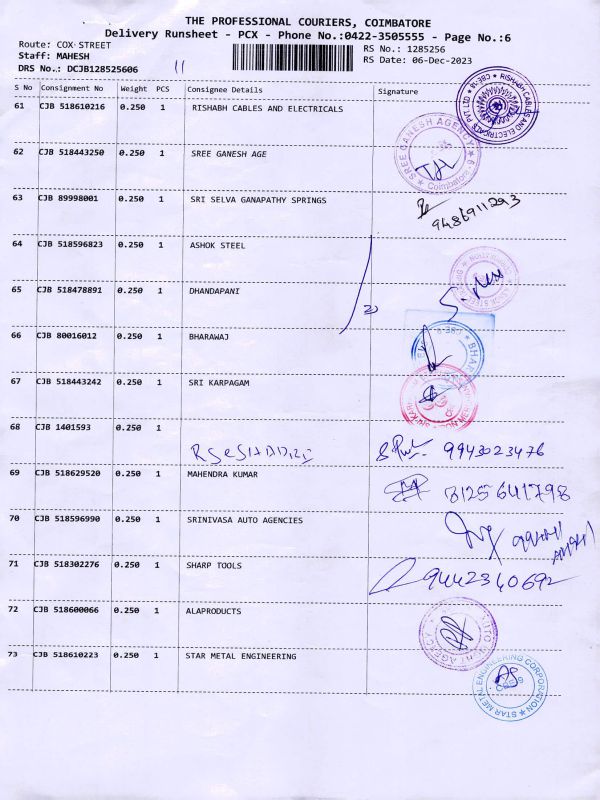 THE PROFESSIONAL COURIERS, COIMBATORE
Delivery Runsheet - PCX - Phone No.:0422-3505555 - Page No.:6
Route: COX STREET
RS No.: 1285256
Staff: MAHESH
RS Date: 06-Dec-2023
DRS No.: DCJB128525606
11
S No Consignment No Weight PCS Consignee Details Signature
61 CJB 518610216 0.250 1 RISHABH CABLES AND ELECTRICALS
RISHABH CABLES AND ELECTRICALS PVT LTD CBE-18
62 CJB 518443250 0.250 1 SREE GANESH AGE
SREE GANESH AGENCY Coimbatore
63 CJB 89998001 0.250 1 SRI SELVA GANAPATHY SPRINGS
9486911293
64 CJB 518596823 0.250 1 ASHOK STEEL
65 CJB 518478891 0.250 1 DHANDAPANI
66 CJB 80016012 0.250 1 BHARAWAJ
67 CJB 518443242 0.250 1 SRI KARPAGAM
68 CJB 1401593 0.250 1
9943023476
69 CJB 518629520 0.250 1 MAHENDRA KUMAR
8125641798
70 CJB 518596990 0.250 1 SRINIVASA AUTO AGENCIES
71 CJB 518302276 0.250 1 SHARP TOOLS
9442340692
72 CJB 518600066 0.250 1 ALAPRODUCTS
73 CJB 518610223 0.250 1 STAR METAL ENGINEERING
STAR METAL ENGINEERING CORPORATION